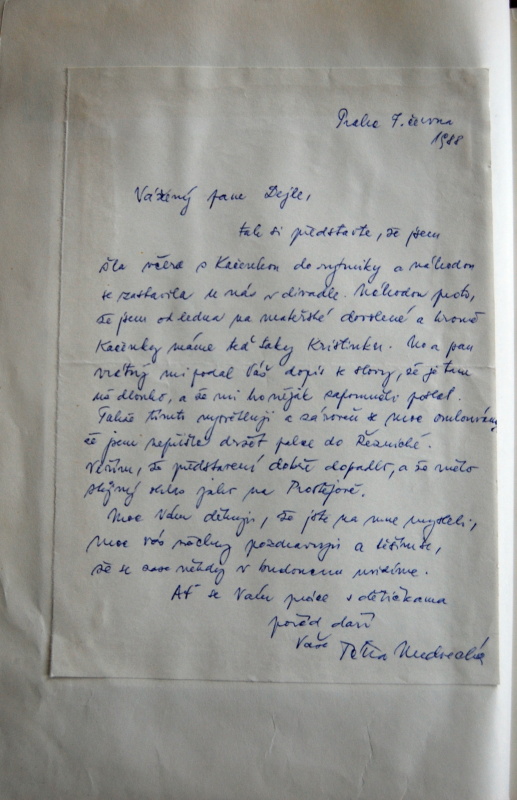 Praha 7. června
1988
Vážený pane Dejle,
tak si představte, že jsem
šla včera s Kačenkou do rytmiky a náhodou
se zastavila u nás v divadle. Náhodou proto,
že jsem od ledna na mateřské dovolené a kromě
Kačenky máme teď taky Kristinku. No a pan
vrátný mi podal Váš dopis s slovy, že je tam
už dlouho, a že mi ho nějak zapomněli poslat.
Takže tímto vysvětluji a zároveň se moc omlouvám,
že jsem nepřišla držet palce do Řeznické.
Věřím, že představení dobře dopadlo, a že mělo
stejný ohlas jako na Prostějově.
Moc Vám děkuji, že jste na mne myslel,
moc vás všechny pozdravuji a těším se,
že se zase někdy v budoucnu uvidíme.
Ať se Vám práce s dětičkama
pořád daří
Vaše